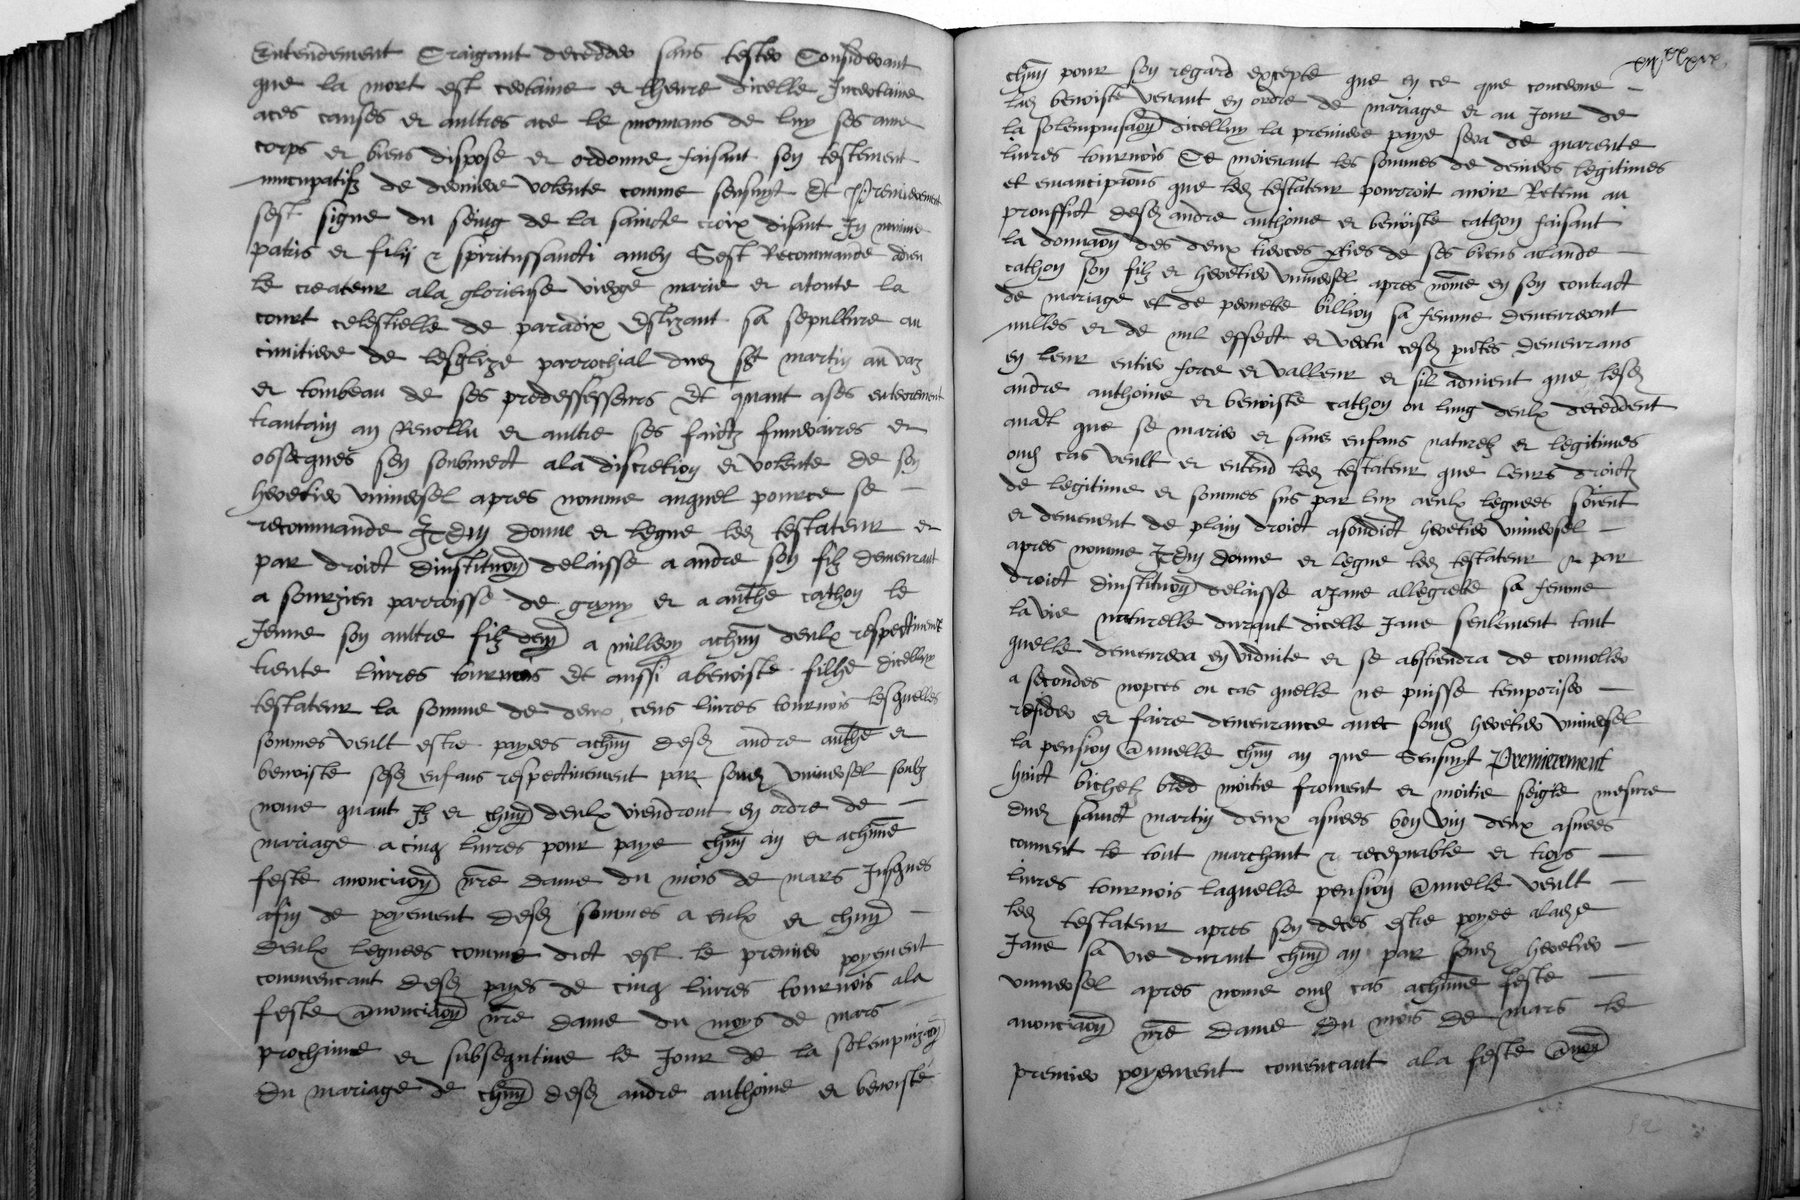 Entendement Craigant decedder sans tester Considerant
que la mort est certaine et lheure dicelle Incertaine
aces causes et aultres ace le mouvans de luy ses ame
corps et biens dispose et ordonne faisant son testement
nuncupatifz de derniere volente comme sensuyt Et Premierement
sest signe du seing de la saincte croix disant In nomine
patris et filii & spiritussancti amen Sest Recommande adieu
le createur ala glorieuse vierge marie et atoute la
court celestielle de paradix Eslizant sa sepulture au
cimitiere de lesglize parrochial dud sct martin au vaz
et tombeau de ses predessesseurs Et quant ases enterrement
trantain an Revollu et aultre ses faictz funeraires et
obseques sen soubmect ala discretion et volente de son
heretier universel apres nomme auquel pource se
recommande Item donne et legue led testateur et
par droict dinstitution delaisse a andre son filz demeurant
a sourzien parroisse de grxny et a anthe cathon le
Jeune son aultre filz a achun deulx respectivement
trente livres tournois Et aussi abenoiste filhe dicelluy
testateur la somme de deux cens livres tournois lesquelles
sommes veult estre payees achun desd andre anthe et
benoiste sesd enfans respectivement par sond universel soubz
nome quant Ilz et chun deulx viendront en ordre de
mariage acinq livres pour paye chun an et achune
feste anonciaon nre dame du mois de mars Jusques
afin de poyement desd sommes a eulx et chun
deulx leguees comme dict est le premier poyement
commencant desd payes de cinq livres tournois ala
feste anonciaon nre dame du moys de mars
prochaine et subsequtive le Jour de la solempnizaon
du mariage de chun desd andre anthoine et benoiste
chun pour son regard excepte que en ce que concerne
lad benoiste venant en ordre de mariage et au Jour de
la solempnisaon dicelluy la premiere paye sera de quarente
livres tournois Et moienant les sommes de deniers legitimes
et emancipaons que led testateur pourroit avoir Retenu au
prouffict desd andre anthoine et benoiste cathon faisant
la donnaon des deux tierces pties de ses biens aclaude
cathon son filz et heretier universel apres nome en son contract
de mariage et de pernette billion sa femme demeureront
nulles et de nul effect et vertu cesd pntes demeurans
en leur entier force et valleur et sil advient que lesd
andre anthoine et benoiste cathon ou lung deulx deceddent
avant que se marier et sans enfans naturelz et legitimes
oud cas veult et entend led testateur que leurs droictz
de legitime et sommes sus par luy aeulx leguees soient
et demeurent de plain droict asondict heretier universel
apres nomme Item donne et legue led testateur & par
droict dinstitution delaisse aJane allegrete sa femme
la vie naturelle durant dicelle Jane seulement tant
quelle demeurera en viduite et se abstiendra de convoller
a secondes nopces ou cas quelle ne puisse temporiser
resider et faire demeurance avec sond heretier universel
la pension annuelle chun an que Sensuyt Premierement
huict bichetz bled moitie froment et moitie seigle mesure
dud sainct martin deux asnees bon vin deux asnees
couvent le tout marchant & recepvable et troys
livres tournois laquelle pension annuelle veult
led testateur apres son deces estre poyee alad
Jane sa vie durant chun an par sond heretier
universel apres nome oud cas achune feste
anonciaon nre dame du mois de mars le
premier poyement comencant ala feste